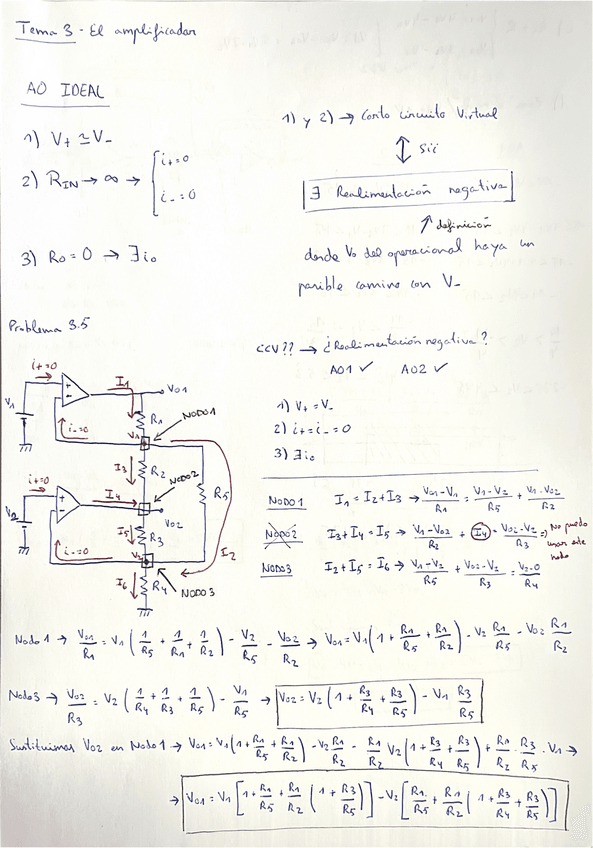 Tema 3 - El amplificador
AO IDEAL
1) V+ ≃ V-
2) RIN → ∞ → { i+=0
i-=0
3) Ro = 0 → ∃ io
1) y 2) → Corto circuito Virtual
⇕ sii
∃ Realimentación negativa
⇑ definición
desde Vo del operacional haya un
posible camino con V-
Problema 3.5
CCV?? → ¿Realimentación negativa?
AO1 ✓ AO2 ✓
1) V+ = V-
2) i+ = i- = 0
3) ∃ io
i+=0
I1
V01
V1
R1
NODO1
i-=0
V1
I3
R2
NODO2
R5
i+=0
I4
V02
V2
I5
R3
I2
i-=0
V2
I6
R4
NODO3
NODO1 I1 = I2 + I3 → (V01-V1)/R1 = (V1-V2)/R5 + (V1-V02)/R2
NODO2 I3 + I4 = I5 → (V1-V02)/R2 + I4 = (V02-V2)/R3 ⇒ No puedo
usar este
nodo
NODO3 I2 + I5 = I6 → (V1-V2)/R5 + (V02-V2)/R3 = (V2-0)/R4
Nodo 1 → V01/R1 = V1 (1/R5 + 1/R1 + 1/R2) - V2/R5 - V02/R2 → V01 = V1 (1 + R1/R5 + R1/R2) - V2 R1/R5 - V02 R1/R2
Nodo 3 → V02/R3 = V2 (1/R4 + 1/R3 + 1/R5) - V1/R5 → V02 = V2 (1 + R3/R4 + R3/R5) - V1 R3/R5
Sustituimos V02 en Nodo 1 → V01 = V1 (1 + R1/R5 + R1/R2) - V2 R1/R2 - R1/R2 V2 (1 + R3/R4 + R3/R5) + R1/R2 · R3/R5 · V1 →
→ V01 = V1 [1 + R1/R5 + R1/R2 (1 + R3/R5)] - V2 [R1/R5 + R1/R2 (1 + R3/R4 + R3/R5)]